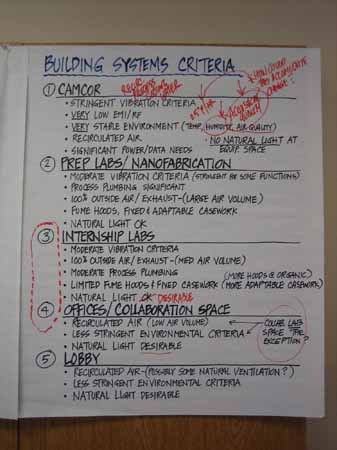 BUILDING SYSTEMS CRITERIA
① CAMCOR
• STRINGENT VIBRATION CRITERIA
• VERY LOW EMI/RF
• VERY STABLE ENVIRONMENT (TEMP, HUMIDITY, AIR QUALITY)
• RECIRCULATED AIR • NO NATURAL LIGHT AT EQUIP. SPACE
• SIGNIFICANT POWER/DATA NEEDS
② PREP LABS/NANOFABRICATION
• MODERATE VIBRATION CRITERIA (STRINGENT FOR SOME FUNCTIONS)
• PROCESS PLUMBING SIGNIFICANT
• 100% OUTSIDE AIR/EXHAUST-(LARGE AIR VOLUME)
• FUME HOODS, FIXED & ADAPTABLE CASEWORK
• NATURAL LIGHT OK
③ INTERNSHIP LABS
• MODERATE VIBRATION CRITERIA
• 100% OUTSIDE AIR/EXHAUST-(MED AIR VOLUME)
• MODERATE PROCESS PLUMBING (MORE HOODS @ ORGANIC)
• LIMITED FUME HOODS/FIXED CASEWORK (MORE ADAPTABLE CASEWORK)
• NATURAL LIGHT OK DESIRABLE
④ OFFICES/COLLABORATION SPACE
• RECIRCULATED AIR (LOW AIR VOLUME)
• LESS STRINGENT ENVIRONMENTAL CRITERIA
• NATURAL LIGHT DESIRABLE
COLLAB LABS
SPACE THE
EXCEPTION?
⑤ LOBBY
• RECIRCULATED AIR-(POSSIBLY SOME NATURAL VENTILATION?)
• LESS STRINGENT ENVIRONMENTAL CRITERIA
• NATURAL LIGHT DESIRABLE